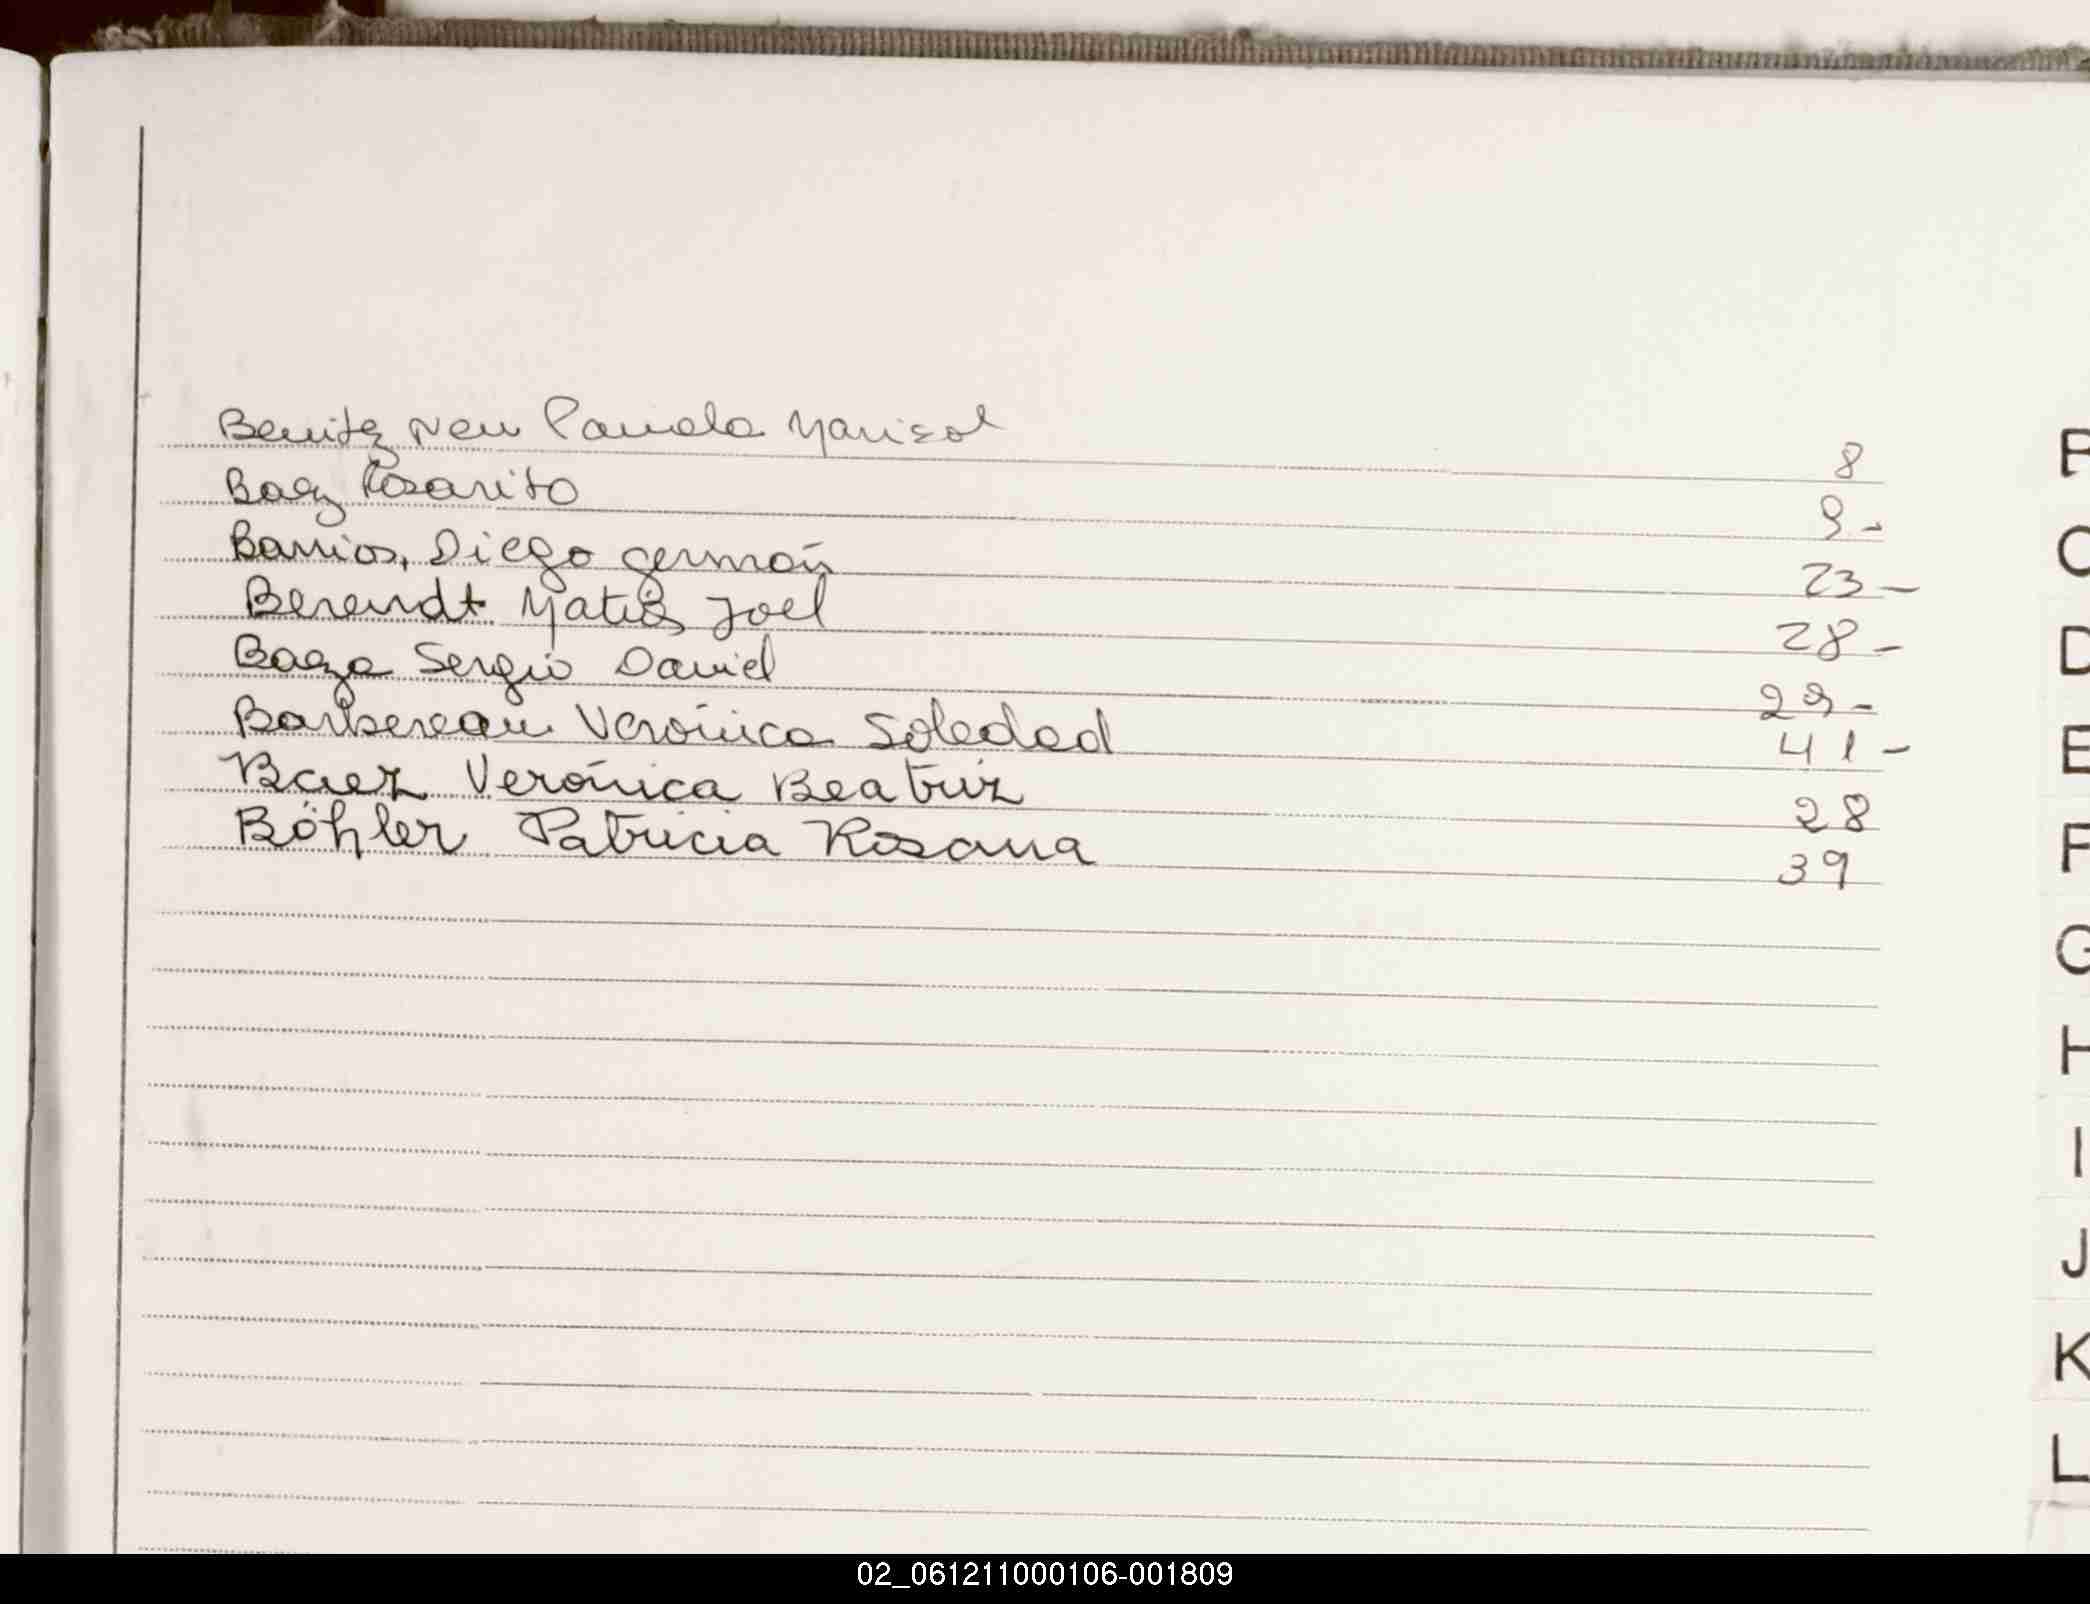 Benitez Neu Pamela Marisol 8
Baez Rosarito 9-
Barrios, Diego Germán 23-
Berendt Matias Joel 28-
Baeza Sergio David 29-
Barbereau Verónica Soledad 41-
Baez Verónica Beatriz 28
Böhler Patricia Rosana 39
C
D
E
F
G
H
I
J
K
L
02_061211000106-001809